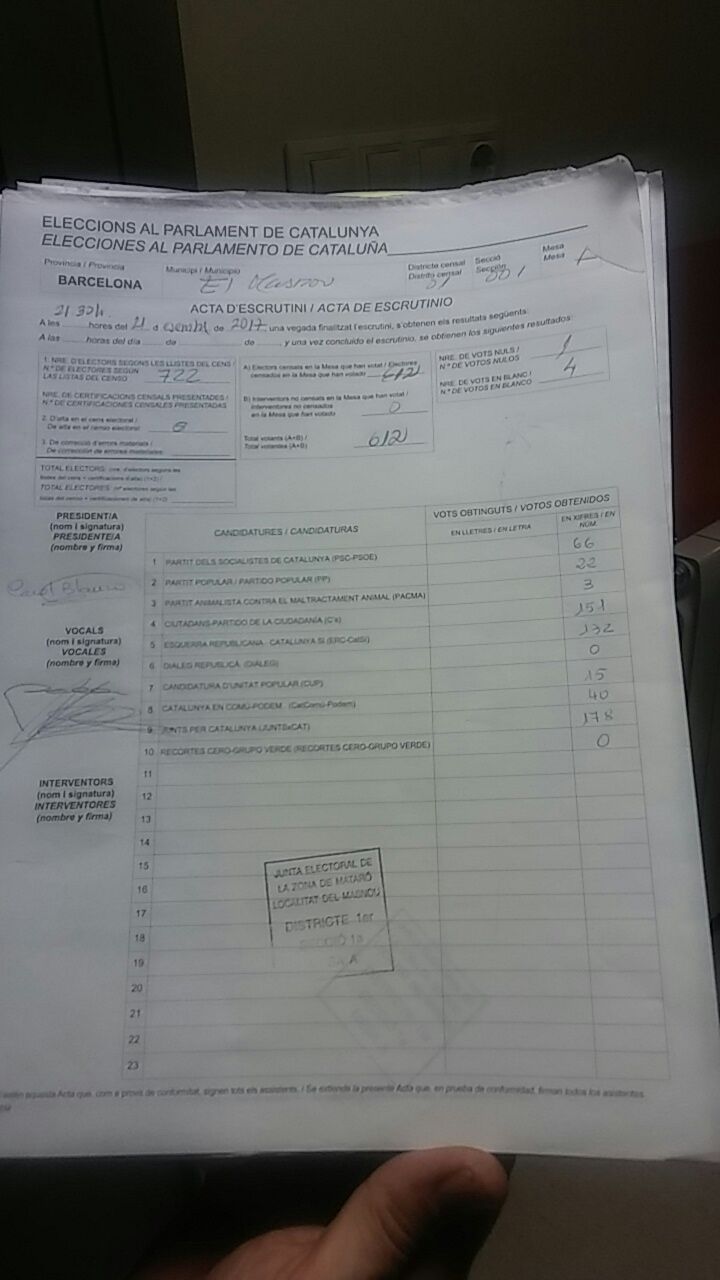 ELECCIONS AL PARLAMENT DE CATALUNYA
ELECCIONES AL PARLAMENTO DE CATALUÑA
Província / Provincia
BARCELONA
Municipi / Municipio
El Masnou
Districte censal
Distrito censal
01
Secció
Sección
001
Mesa
Mesa
A
ACTA D'ESCRUTINI / ACTA DE ESCRUTINIO
A les 21 32h. hores del 21 d de 2017 una vegada finalitzat l'escrutini, s'obtenen els resultats següents:
A las ____ horas del día ____ de ____ de ____, y una vez concluido el escrutinio, se obtienen los siguientes resultados:
1. NRE. D'ELECTORS SEGONS LES LLISTES DEL CENS /
N.º DE ELECTORES SEGÚN
LAS LISTAS DEL CENSO 722
NRE. DE CERTIFICACIONS CENSALS PRESENTADES /
N.º DE CERTIFICACIONES CENSALES PRESENTADAS
2. D'alta en el cens electoral /
De alta en el censo electoral
3. De correcció d'errors materials /
De corrección de errores materiales
TOTAL ELECTORS: (nre. d'electors segons les
llistes del cens + certificacions d'alta) (1+2) /
TOTAL ELECTORES: (nº electores según las
listas del censo + certificaciones de alta) (1+2)
A) Electors censats en la Mesa que han votat / Electores
censados en la Mesa que han votado 612
B) Interventors no censats en la Mesa que han votat /
Interventores no censados
en la Mesa que han votado 0
Total votants (A+B) /
Total votantes (A+B) 612
NRE. DE VOTS NULS /
N.º DE VOTOS NULOS 1
NRE. DE VOTS EN BLANC /
N.º DE VOTOS EN BLANCO 4
PRESIDENT/A
(nom i signatura)
PRESIDENTE/A
(nombre y firma)
VOCALS
(nom i signatura)
VOCALES
(nombre y firma)
INTERVENTORS
(nom i signatura)
INTERVENTORES
(nombre y firma)
CANDIDATURES / CANDIDATURAS
VOTS OBTINGUTS / VOTOS OBTENIDOS
EN LLETRES / EN LETRA
EN XIFRES / EN NÚM.
1 PARTIT DELS SOCIALISTES DE CATALUNYA (PSC-PSOE) 66
2 PARTIT POPULAR / PARTIDO POPULAR (PP) 22
3 PARTIT ANIMALISTA CONTRA EL MALTRACTAMENT ANIMAL (PACMA) 3
4 CIUTADANS-PARTIDO DE LA CIUDADANÍA (C's) 151
5 ESQUERRA REPUBLICANA - CATALUNYA SÍ (ERC-CatSí) 132
6 DIÀLEG REPUBLICÀ (DIÀLEG) 0
7 CANDIDATURA D'UNITAT POPULAR (CUP) 15
8 CATALUNYA EN COMÚ-PODEM (CatComú-Podem) 40
9 JUNTS PER CATALUNYA (JUNTSxCAT) 178
10 RECORTES CERO-GRUPO VERDE (RECORTES CERO-GRUPO VERDE) 0
11
12
13
14
15
16
17
18
19
20
21
22
23
JUNTA ELECTORAL DE
LA ZONA DE MATARÓ
LOCALITAT DEL MASNOU
DISTRICTE 1er
SECCIÓ 1a
A
aquesta Acta que, com a prova de conformitat, signen tots els assistents. / Se extiende la presente Acta que, en prueba de conformidad, firman todos los asistentes.